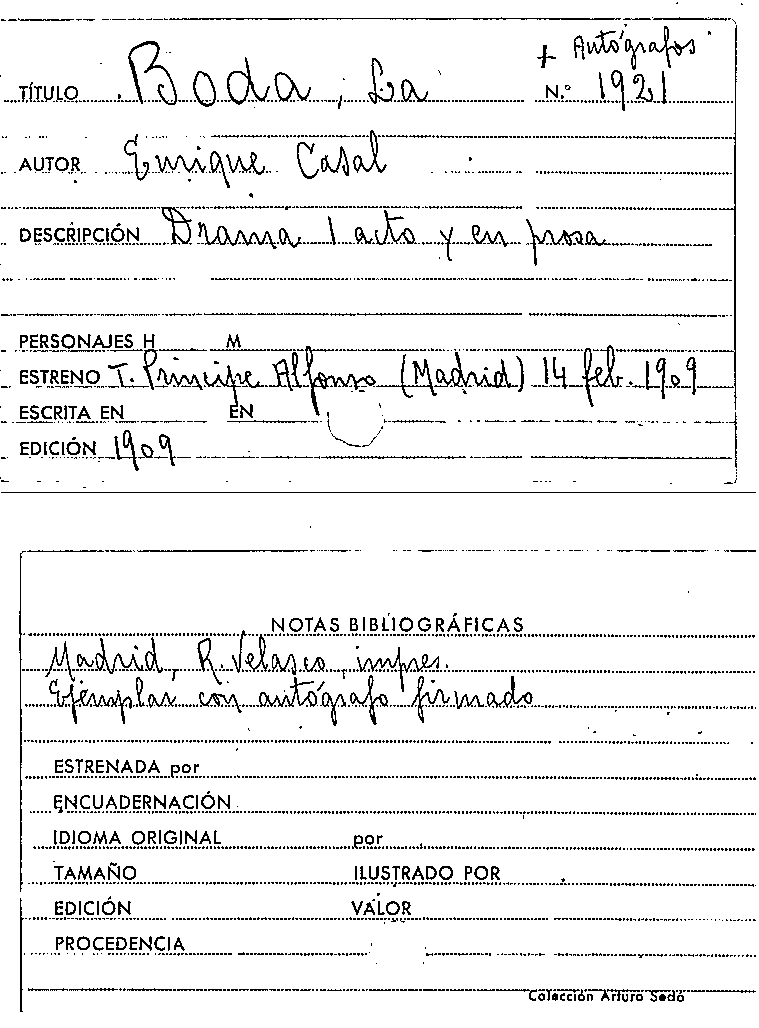 + Autógrafos
TÍTULO Boda, La N.º 1921
AUTOR Enrique Casal
DESCRIPCIÓN Drama 1 acto y en prosa
PERSONAJES H M
ESTRENO T. Príncipe Alfonso (Madrid) 14 feb. 1909
ESCRITA EN EN
EDICIÓN 1909
NOTAS BIBLIOGRÁFICAS
Madrid, R. Velasco, impres.
Ejemplar con autógrafo firmado
ESTRENADA por
ENCUADERNACIÓN
IDIOMA ORIGINAL por
TAMAÑO ILUSTRADO POR
EDICIÓN VALOR
PROCEDENCIA
Colección Arturo Sedó